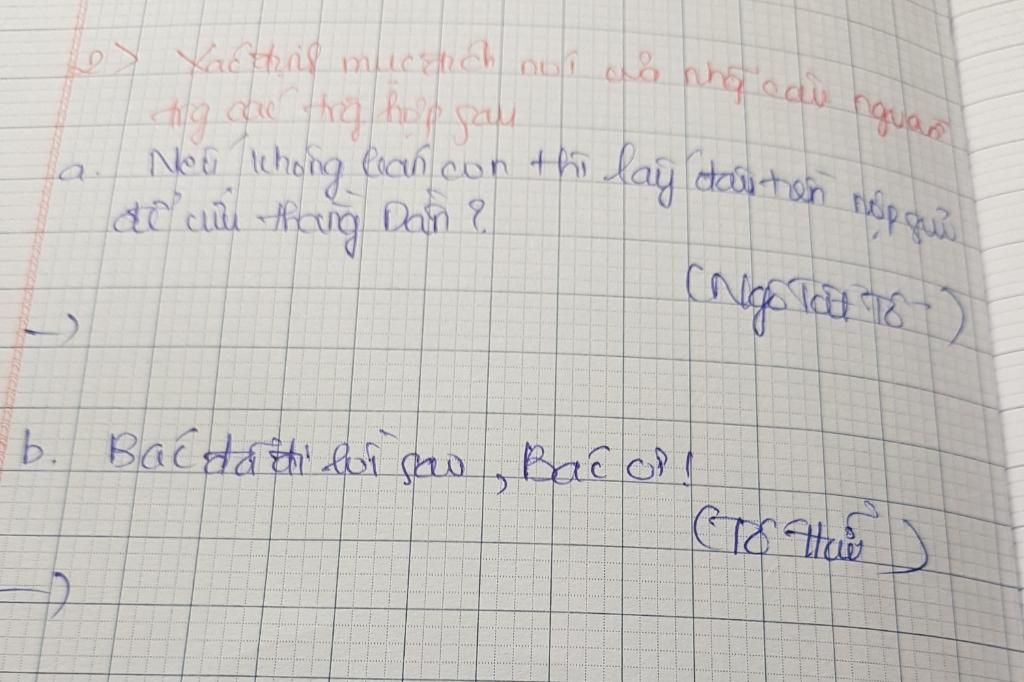 Xác định mục đích nói của nhg câu nguan
tg các trg hợp sau
a. Nếu không bán con thì lấy đâu tiền nộp sưu
để cứu thằng Dần ?
(Ngô Tất Tố)
→
b. Bác đã đi rồi sao, Bác ơi !
(Tố Hữu)
→